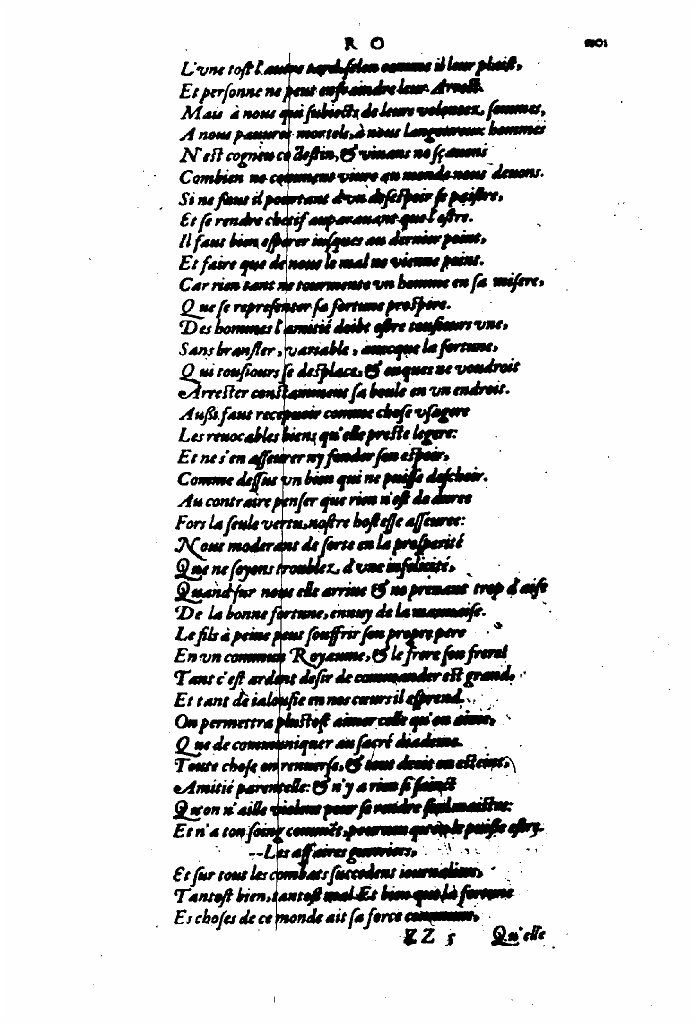 R O
L'vne tost l'autre tard, selon comme il leur plaist,
Et personne ne peut enfraindre leur Arrest.
Mais à nous qui subiects de leurs volontez sommes,
A nous pauures mortels, à nous langoureux hommes
N'est cogneu ce destin, & viuans ne sçauons
Combien ne comment viure au monde nous deuons.
Si ne faut il pourtant d'vn desespoir se paistre,
Et se rendre chetif auparauant que l'estre.
Il faut bien esperer iusques au dernier point,
Et faire que de nous le mal ne vienne point.
Car rien tant ne tourmente vn homme en sa misere,
Que se representer sa fortune prospere.
Des hommes l'amitié doibt estre tousiours vne,
Sans bransler, variable, auecque la fortune,
Qui tousiours se desplace, & onques ne voudroit
Arrester constamment sa boule en vn endroit.
Aussi faut receuoir comme chose vsagere
Les reuocables biens qu'elle preste legere:
Et ne s'en asseurer ny fonder son espoir,
Comme dessus vn bien qui ne puisse descheoir.
Au contraire penser que rien n'est de duree
Fors la seule vertu, nostre hostesse asseuree:
Nous moderant de sorte en la prosperité
Que ne soyons troublez d'vne infelicité,
Quand sur nous elle arriue & ne prenant trop d'aise
De la bonne fortune, ennuy de la mauuaise.
Le fils à peine peut souffrir son propre pere
En vn commun Royaume, & le frere son frere:
Tant c'est ardent desir de commander est grand,
Et tant de ialousie en nos cœurs il esprend.
On permettra plustost aimer celle qu'on aime,
Que de communiquer au sacré diademe.
Toute chose on renuerse, & tout droit on esteint,
Amitié parentelle: & n'y a rien si sainct
Qu'on n'aille violant pour se rendre seul maistre:
Et n'a ton soing comment, pourueu qu'on le puisse estre.
--Les affaires guerriers,
Et sur tous les combats succedent iournaliers,
Tantost bien, tantost mal. Et bien que là fortune
Es choses de ce monde ait sa force commune,
ZZ 5 Qu'elle